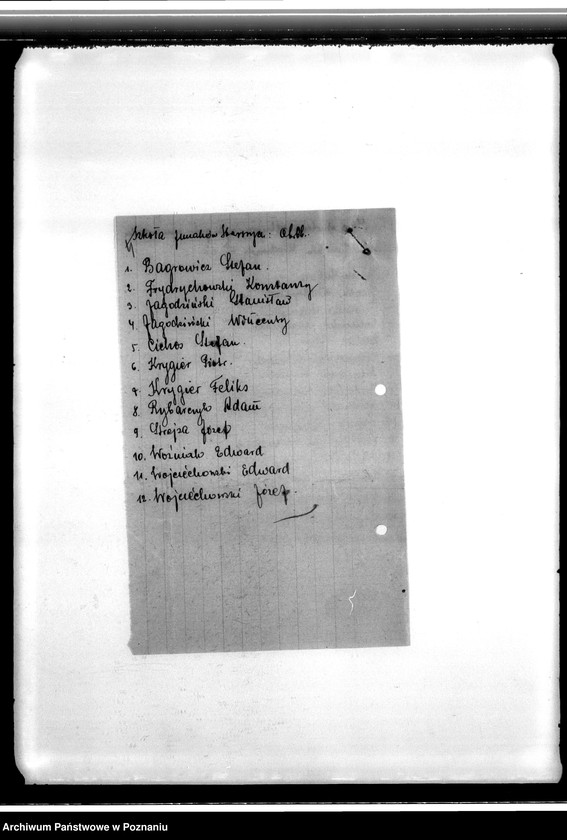 Szkoła junaków Starsza:
1. Bagrowicz Stefan.
2. Frydrychowski Konstanty
3. Jagodziński Stanisław
4. Jagodziński Wincenty
5. Cichos Stefan.
6. Krygier Piotr.
7. Krygier Feliks
8. Rybarczyk Adam
9. Strejza Józef
10. Woźniak Edward
11. Wojciechowski Edward
12. Wojciechowski Józef.
Archiwum Państwowe w Poznaniu